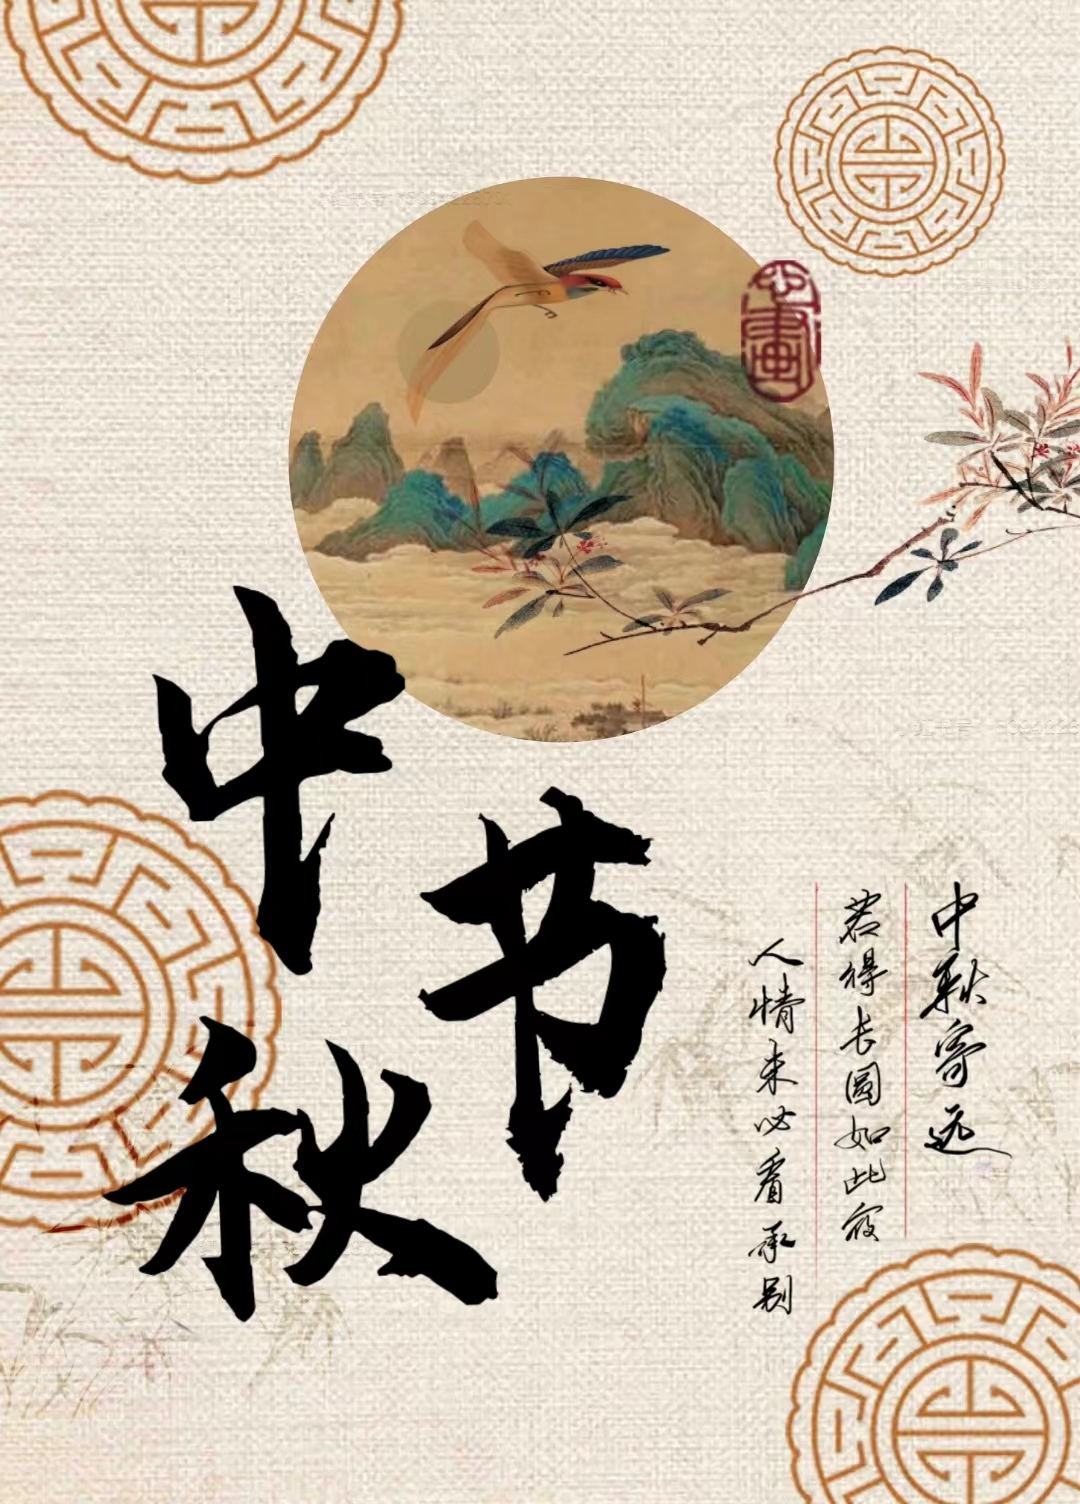 中秋节
中秋寄远
若得长圆如此夜
人情未必看承别